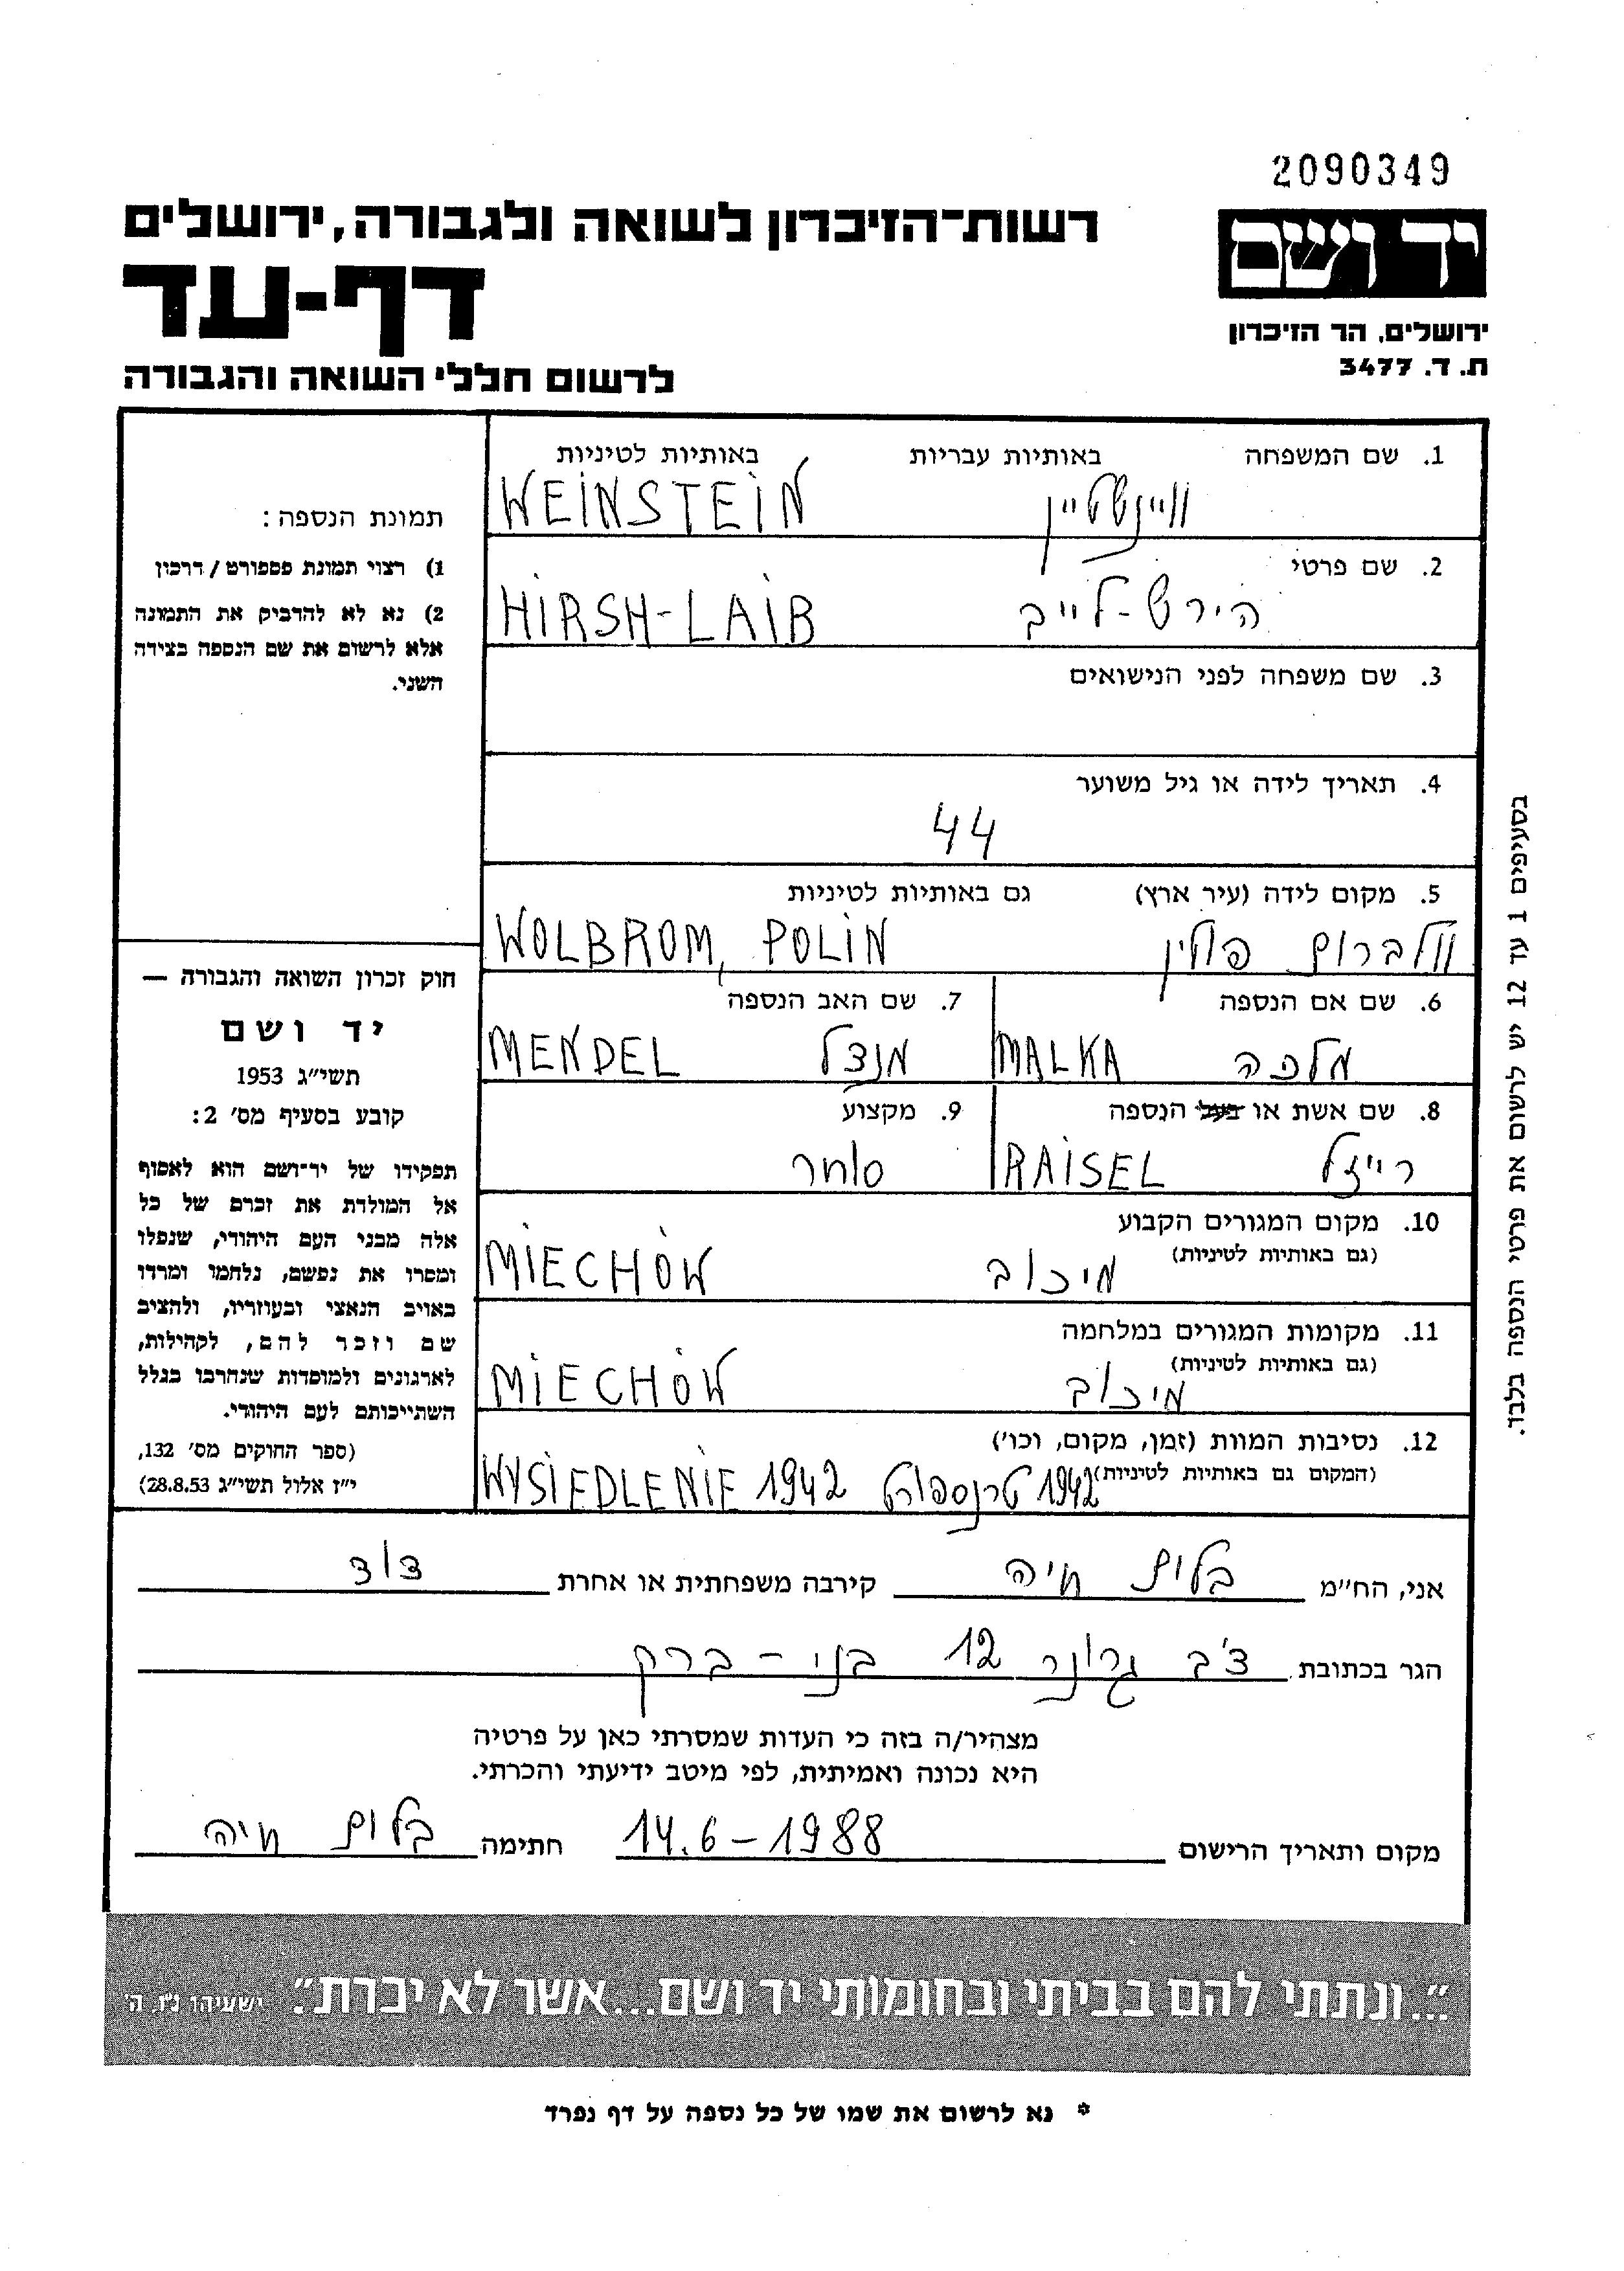 2090349
יד ושם
ירושלים, הר הזיכרון
ת. ד. 3477
רשות-הזיכרון לשואה ולגבורה, ירושלים
דף-עד
לרשום חללי השואה והגבורה
1. שם המשפחה באותיות עבריות באותיות לטיניות
וויינשטיין WEINSTEIN
2. שם פרטי
הירש-לייב HIRSH-LAIB
3. שם משפחה לפני הנישואים
4. תאריך לידה או גיל משוער
44
5. מקום לידה (עיר ארץ) גם באותיות לטיניות
וולברום פולין WOLBROM, POLIN
6. שם אם הנספה 7. שם האב הנספה
מלכה MALKA מנדל MENDEL
8. שם אשת או בעל הנספה 9. מקצוע
רייזל RAISEL סוחר
10. מקום המגורים הקבוע
(גם באותיות לטיניות)
מיכוב MIECHÓW
11. מקומות המגורים במלחמה
(גם באותיות לטיניות)
מיכוב MIECHÓW
12. נסיבות המוות (זמן, מקום, וכו')
(המקום גם באותיות לטיניות)
1942 טרנספורט WYSIEDLENIE 1942
תמונת הנספה:
1) רצוי תמונת פספורט/דרכון
2) נא לא להדביק את התמונה
אלא לרשום את שם הנספה בצידה
השני.
חוק זכרון השואה והגבורה —
יד ושם
תשי"ג 1953
קובע בסעיף מס' 2:
תפקידו של יד-ושם הוא לאסוף
אל המולדת את זכרם של כל
אלה מבני העם היהודי, שנפלו
ומסרו את נפשם, נלחמו ומרדו
באויב הנאצי ובעוזריו, ולהציב
שם וזכר להם, לקהילות,
לארגונים ולמוסדות שנחרבו בגלל
השתייכותם לעם היהודי.
(ספר החוקים מס' 132,
י"ז אלול תשי"ג 28.8.53)
בסעיפים 1 עד 12 יש לרשום את פרטי הנספה בלבד.
אני, הח"מ בלום חיה קירבה משפחתית או אחרת דוד
הגר בכתובת דב גרונר 12 בני - ברק
מצהיר/ה בזה כי העדות שמסרתי כאן על פרטיה
היא נכונה ואמיתית, לפי מיטב ידיעתי והכרתי.
מקום ותאריך הרישום 14.6-1988 חתימה בלום חיה
"...ונתתי להם בביתי ובחומותי יד ושם...אשר לא יכרת". ישעיהו נ"ו, ה'
* נא לרשום את שמו של כל נספה על דף נפרד